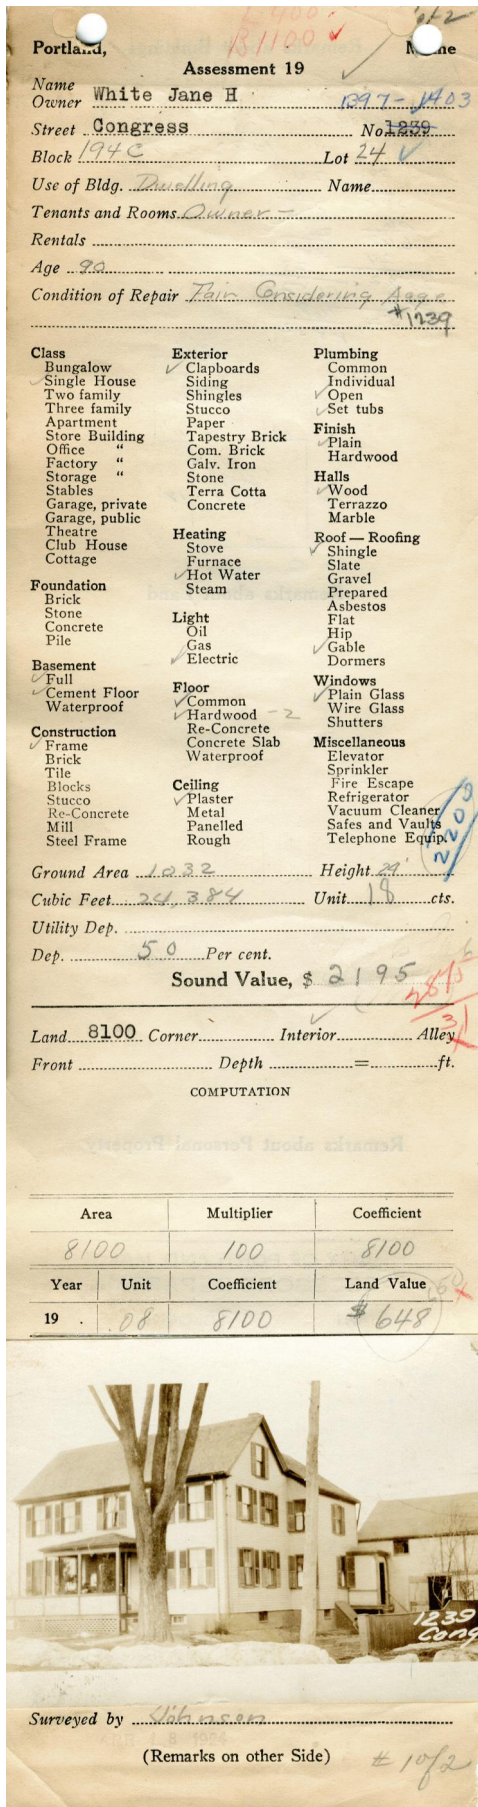 L 400.
B 1100 ✓
1 of 2
Portland, Maine
Assessment 19
Name
Owner White Jane H 1397-1403
Street Congress No. 1239
Block 194 C Lot 24 ✓
Use of Bldg. Dwelling Name
Tenants and Rooms Owner —
Rentals
Age 90
Condition of Repair Fair Considering Agge
#1239
Class
Bungalow
✓ Single House
Two family
Three family
Apartment
Store Building
Office "
Factory "
Storage "
Stables
Garage, private
Garage, public
Theatre
Club House
Cottage
Foundation
Brick
Stone
Concrete
Pile
Basement
✓ Full
✓ Cement Floor
Waterproof
Construction
✓ Frame
Brick
Tile
Blocks
Stucco
Re-Concrete
Mill
Steel Frame
Exterior
✓ Clapboards
Siding
Shingles
Stucco
Paper
Tapestry Brick
Com. Brick
Galv. Iron
Stone
Terra Cotta
Concrete
Heating
Stove
Furnace
✓ Hot Water
Steam
Light
Oil
Gas
✓ Electric
Floor
✓ Common
✓ Hardwood — 2
Re-Concrete
Concrete Slab
Waterproof
Ceiling
✓ Plaster
Metal
Panelled
Rough
Plumbing
Common
Individual
✓ Open
✓ Set tubs
Finish
✓ Plain
Hardwood
Halls
✓ Wood
Terrazzo
Marble
Roof — Roofing
✓ Shingle
Slate
Gravel
Prepared
Asbestos
Flat
Hip
✓ Gable
Dormers
Windows
✓ Plain Glass
Wire Glass
Shutters
Miscellaneous
Elevator
Sprinkler
Fire Escape
Refrigerator
Vacuum Cleaner
Safes and Vaults
Telephone Equip.
2200
Ground Area 1032 Height 29'
Cubic Feet 24,384 Unit 18 cts.
Utility Dep.
Dep. 50 Per cent.
Sound Value, $ 2195
Land 8100 Corner Interior ✓ Alley
Front Depth = ft.
COMPUTATION
Area Multiplier Coefficient
8100 100 8100
Year Unit Coefficient Land Value
19 .08 8100 $ 648
1239
Cong
Surveyed by Johnson
(Remarks on other Side)
# 1 of 2